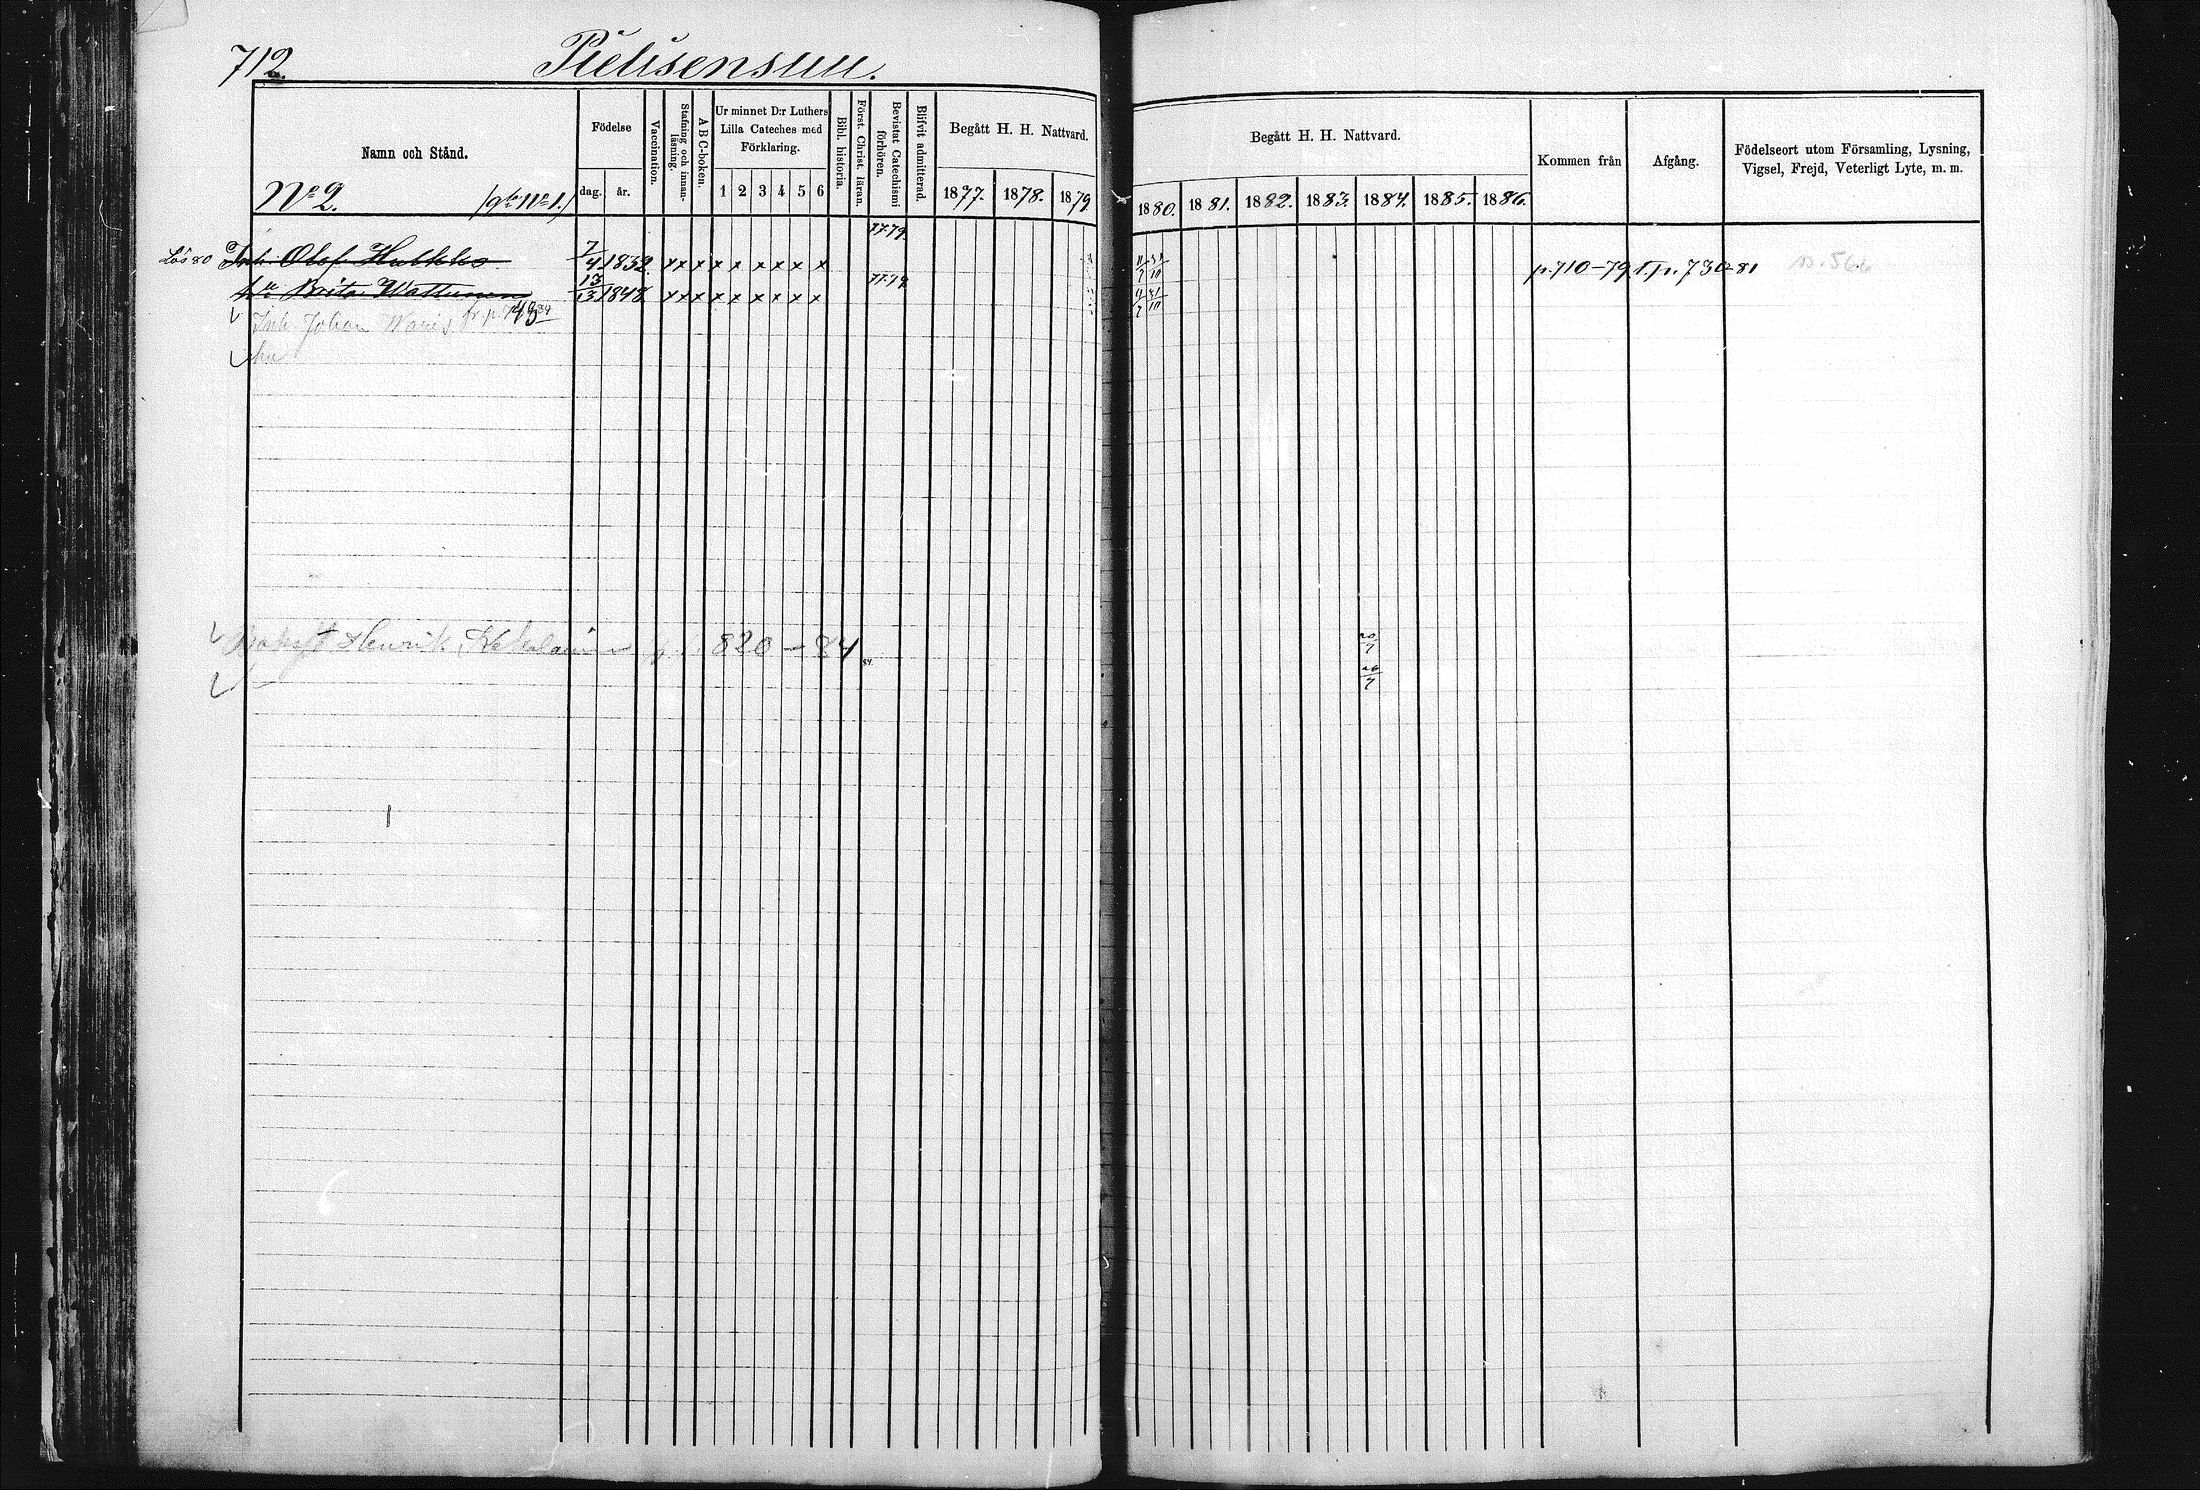 712.
Pielisensuu.
Namn och Stånd.
Födelse
dag.
år.
Vaccination.
Stafning och innan-läsning.
A B C-boken.
Ur minnet D:r Luthers
Lilla Cateches med
Förklaring.
1 2 3 4 5 6
Bibl. historia.
Först. Christ läran.
Bevistat Catechismi förhören.
Blifvit admitterad.
Begått H. H. Nattvard.
1877. 1878. 1879.
Begått H. H. Nattvard.
1880. 1881. 1882. 1883. 1884. 1885. 1886.
Kommen från
Afgång.
Födelseort utom Församling, Lysning,
Vigsel, Frejd, Veterligt Lyte, m. m.
No 2.
Lös 80 Inh. Olof Hukkko 7/4 1832 x x x x x x x x x 77.79. p. 710-79 T. p. 730-81 p. 566
hu Brita Wattunen 13/13 1848 x x x x x x x x x 77.79.
Inh. Johan
hu
Henrik 820-84 84.
20/7
26/7